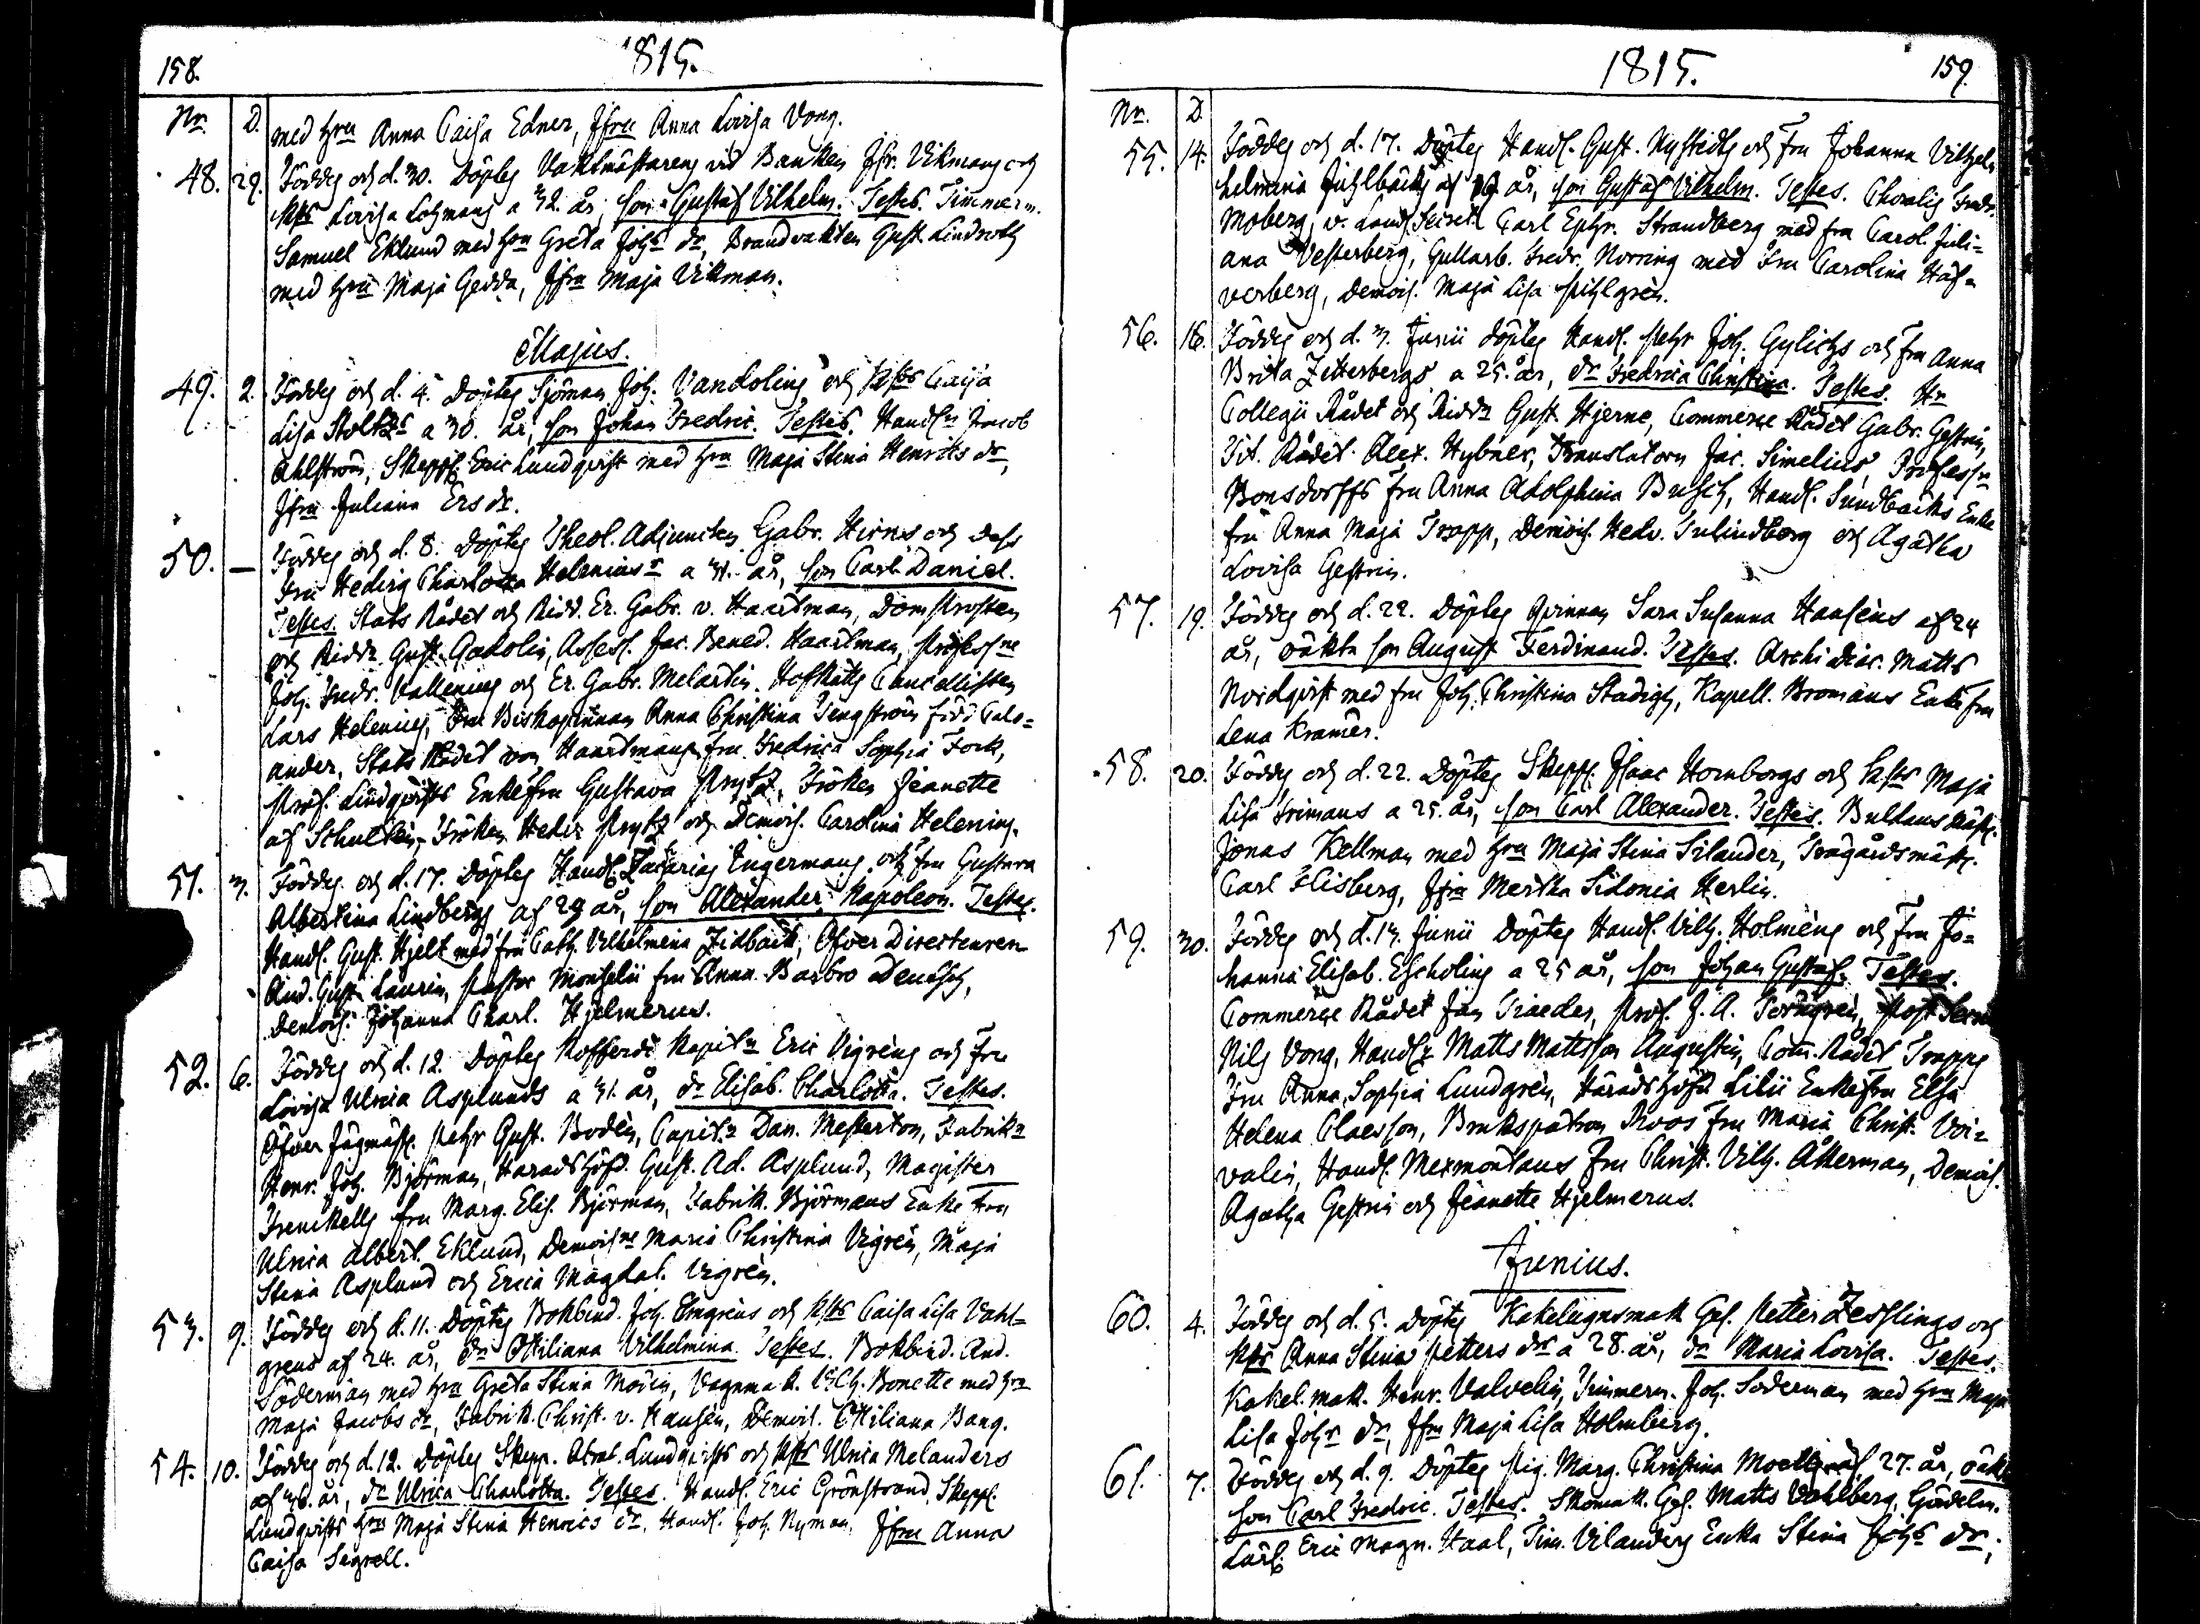 158.
1815.
Nr. D.
med hru Anna Caisa Edner, Jfru Anna Lovisa Vong.
48. 29. Födde och d. 30. Döptes Vaktmästarens vid Banken Vikmans och
hust Lovisa Lohmans a 32. år, son Gustaf Vilhelm. Testes. Timmerm.
Samuel Eklund med hru Greta Johs dr, Brandvakten Gust. Lindroth
med hru Maja Gedda, Jfru Maja Vikman.
Majus.
49. 2. Födde och d. 4. Döptes Sjöman Joh. Vandolins och hust Caisa
Lisa Stoltz a 30. år, son Johan Fredric. Testes. Handl. Jacob
Ahlström, Skepp. Eric Lundqvist med hru Maja Stina Henriks dr,
Jfru Juliana Ers dr.
50. — Födde och d. 8. Döptes Theol. Adjuncten Gabr. Hirns och dess
fru Hedvig Charlotta Helenius a 31. år, son Carl Daniel.
Testes. Stats Rådet och Ridd. Er. Gabr. v. Haartman, Domprosten
och Riddr Gust. Gadolin, Assess. Jac. Bened. Haartman, Professne
Joh. Fredr. Vallenius och Er. Gabr. Melartin, Hofrätts Cancellisten
Lars Helenius, Fru Biskopinnan Anna Christina Tengström född Cals-
ander, Stats Rådet von Haartmans fru Fredrica Sophia Fock,
Prof. Lindqvists Enkefru Gustava Prytz, Fröken Jeanette
af Schultén, Fröken Hedv. Prytz och Demois. Carolina Helenius.
51. 3. Födde och d. 17. Döptes Handl. Zacharias Engermans och fru Gustava
Albertina Lindbergs af 29 år, son Alexander Napoleon. Testes.
Handl. Gust. Hjelt med fru Cath. Vilhelmina Zidbäck, Öfver Directeuren
And. Gust. Laurin, Pastor Montelii fru Anna Barbro
Demois. Johanna Charl. Hjelmerus.
52. 6. Födde och d. 12. Döptes Kofferdi Kapitn Eric Vigrens och fru
Lovisa Ulrica Asplunds a 31. år, dr Elisab. Charlotta. Testes.
Öfver Jägmäst. Pehr Gust. Bodén, Capitn Dan. Mesterton, Fabrikn
Henr. Joh. Björman, Haradshöfd. Gust. Ad. Asplund, Magister
Frenckells fru Marg. Elis. Björman, Fabrik. Björmans Enke fru
Ulrica Albert. Eklund, Demoisne Maria Christina Vigrén, Maja
Stina Asplund och Erica Magdal. Vigrén.
53. 9. Födde och d. 11. Döptes Bokbind. Joh. Engrens och hust Caisa Lisa Vahl-
grens af 24. år, dr Ottiliana Vilhelmina. Testes. Bokbind. And.
Söderman med hru Greta Stina Modén, Vagnmak. Vilh. Bonette med hru
Maja Jacobs dr, Fabrik. Christ. v. Hausen, Demois. Ottiliana Bang.
54. 10. Födde och d. 12. Döptes Skepp. Abrah. Lundqvists och hust Ulrica Melanders
af 36. år, dr Ulrica Charlotta. Testes. Handl. Eric Grönstrand, Skepp.
Lundqvists hru Maja Stina Henrics dr, Handl. Joh. Nyman, Jfru Anna
Caisa Segrell.
159.
1815.
Nr. D.
55. 14. Födde och d. 17. Döptes Handl. Gust. Nystedts och Fru Johanna
helmina år, son Gustaf Vilhelm. Testes. Fredr.
Moberg, v. Landt Secret. Carl Ephr. Strandberg med fru Carol. Juli-
ana Vesterberg, Gullarb. Fredr. Norring med Fru Carolina Häf-
verberg, Demois. Maja Lisa Pihlgrén.
56. 16. Födde och d. 3. Junii döptes Handl. Pehr Joh. Gylichs och fru Anna
Brita Zetterbergs a 25. år, dr Fredrica Christina. Testes. Hr
Collegii Rådet och Riddr Gust. Hjerne, Commerce Rådet Gabr. Gestrin,
Tit. Rådet Alex. Hybner, Translatorn Jac. Simelius, Professn
Bonsdorffs fru Anna Adolphina Busch, Handl. Sundbäcks Enke
fru Anna Maja Trapp, Demois. Hedv. Julindberg och Agatha
Lovisa Gestrin.
57. 19. Födde och d. 22. Döptes qvinnan Sara Susanna Hanséns af 24
år, oäkta son August Ferdinand. Testes. Archi Diac. Matts
Nordqvist med fru Joh. Christina Stadigh, Kapell. Bromans Enke fru
Lena Kramer.
58. 20. Födde och d. 22. Döptes Skepp. Isaac Hornborgs och hust Maja
Lisa Frimans a 25. år, son Carl Alexander. Testes. Bultans Mäst.
Jonas Kellman med hru Maja Stina Silander, Trägårdsmäst.
Carl Flisberg, Jfru Mertha Sidonia Herlin.
59. 30. Födde och d. 13. Junii Döptes Handl. Vilh. Holméns och Fru Jo-
hanna Elisab. Escholins a 25 år, son Johan Gustaf. Testes.
Commerce Rådet Jan Traeder, Prof. J. A. Törngrén, Post
Nils Vong, Handl. Matts Mattsson Augustin, Com. Rådet Trapps
Fru Anna Sophia Lundgrén, Häradshöfd Lilii Enkefru Elsa
Helena Claesson, Brukspatron Roos fru Maria Christ. Voi-
valin, Handl. Mexmontans fru Christ. Vilh. Åkerman, Demois.
Agatha Gestrin och Jeanette Hjelmerus.
Junius.
60. 4. Födde och d. 5. Döptes Kakelugnsmak Ges. Petter Zesslings och
hust Anna Stina Petters dr a 28. år, dr Maria Lovisa. Testes.
Kakel. mak. Henr. Valvelin, Timmerm. Joh. Söderman med hru Maja
Lisa Johs dr, Jfru Maja Lisa Holmberg.
61. 7. Födde och d. 9. Döptes Pig. Marg. Christina af 27. år, oäkt
son Carl Fredric. Testes. Skomak. Ges. Matts Vahlberg, Gördelm.
Lärl. Eric Magn. Haal, Tim. Vilanders Enka Stina Johs dr,